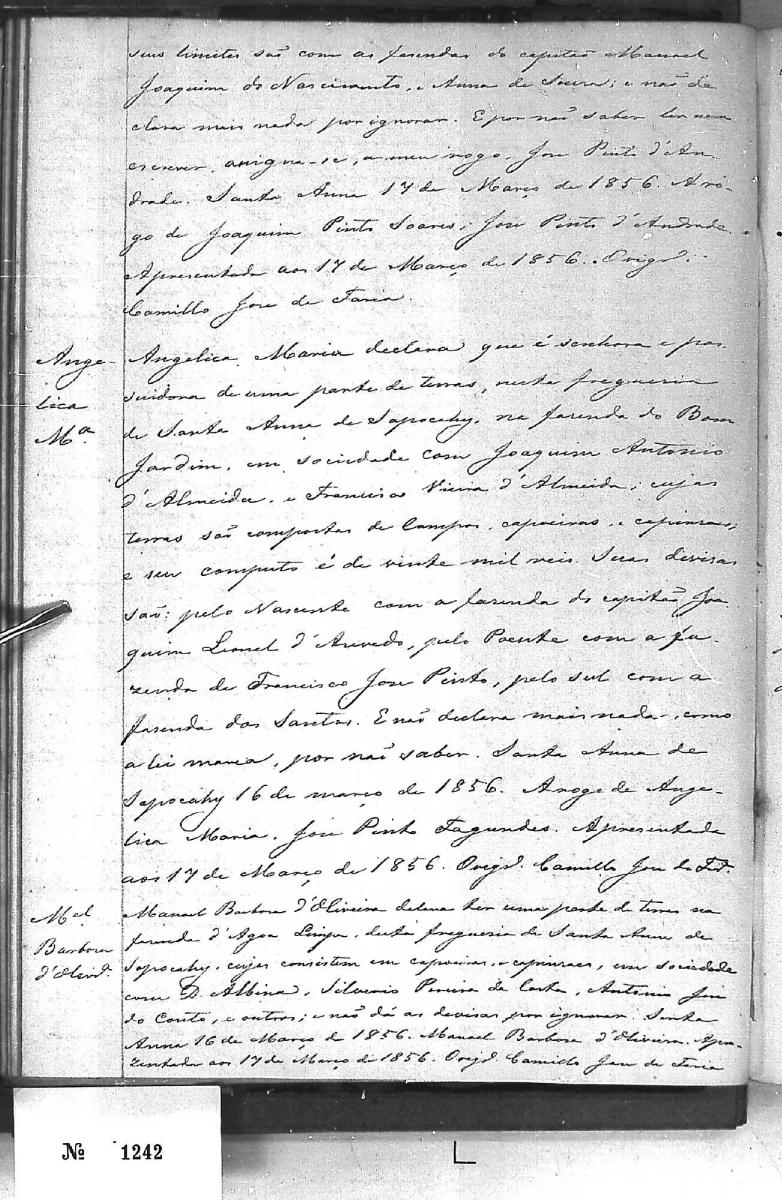 seus limites são com as fazendas do capitão Manoel
Joaquim do Nascimento, e Anna de Souza; e não de
clara mais nada por ignorar. E por não saber ler nem
escrever, assigna-se, a meu rogo, Jose Pinto d'An-
drade. Santa Anna 17 de Março de 1856. A ro-
go de Joaquim Pinto Soares; Jose Pinto d'Andrade.
Apresentada aos 17 de Março de 1856. O vigr.º
Camillo Jose de Faria.
Ange-
lica
Mª
Angelica Maria declara que é senhora e pos
suidora de uma parte de terras, nesta freguezia
de Santa Anna de Sapocahy, na fazenda do Bom
Jardim, em sociedade com Joaquim Antonio
d'Almeida, e Francisco Vieira d'Almeida; cujas
terras são compostas de Campos, capoeiras, e capinzaes;
e seu computo é de vinte mil reis. Suas devisas
são: pelo Nascente com a fazenda do capitão Joa
quim Leonel d'Azevedo, pelo Poente com a fa-
zenda de Francisco Jose Pinto, pelo sul com a
fazenda dos Santos. E não declara mais nada, como
a lei marca, por não saber. Santa Anna de
Sapocahy 16 de março de 1856. A rogo de Ange-
lica Maria, Jose Pinto Fagundes. Apresentada
aos 17 de Março de 1856. O vigr.º Camillo Jose de Fr.ª
Mel
Barbosa
d'Olivr.ª
Manoel Barbosa d'Oliveira delara ter uma parte de terras na
fazenda d'Agoa Limpa, desta freguezia de Santa Anna de
Sapocahy, cujas consistem em capoeiras, e capinzaes, em sociedade
com D. Albina, Silverio Pereira da Costa, Antonio Jose
do Couto, e outros; e não dá as devisas por ignorar. Santa
Anna 16 de Março de 1856. Manoel Barbosa d'Oliveira. Apre-
zentada aos 17 de Março de 1856. O vigr.º Camillo Jose de Faria
Nº 1242